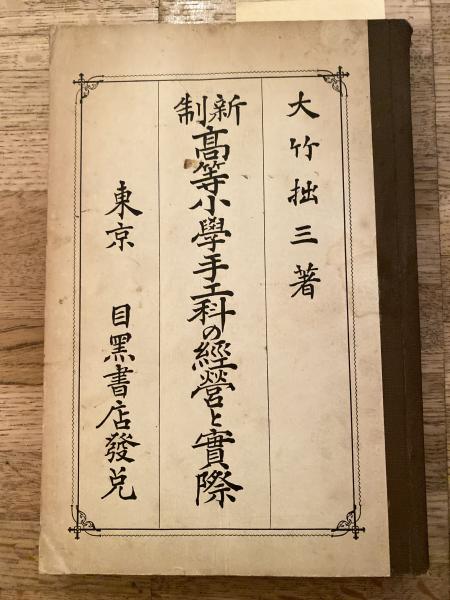 大竹拙三著
新制高等小學手工科の經營と實際
東京 目黑書店發兌